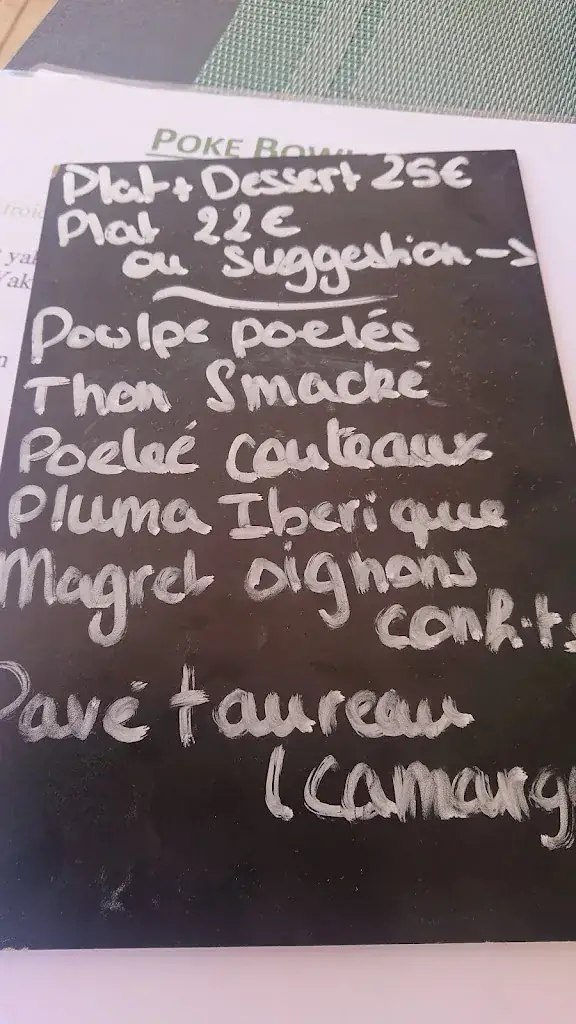 POKE BOWL
Plat + Dessert 25€
Plat 22€
ou suggestion →
Poulpe poelés
Thon Smacké
Poeleé couteaux
Pluma Iberique
Magret oignons
confits
Pavé taureau
(Camarg